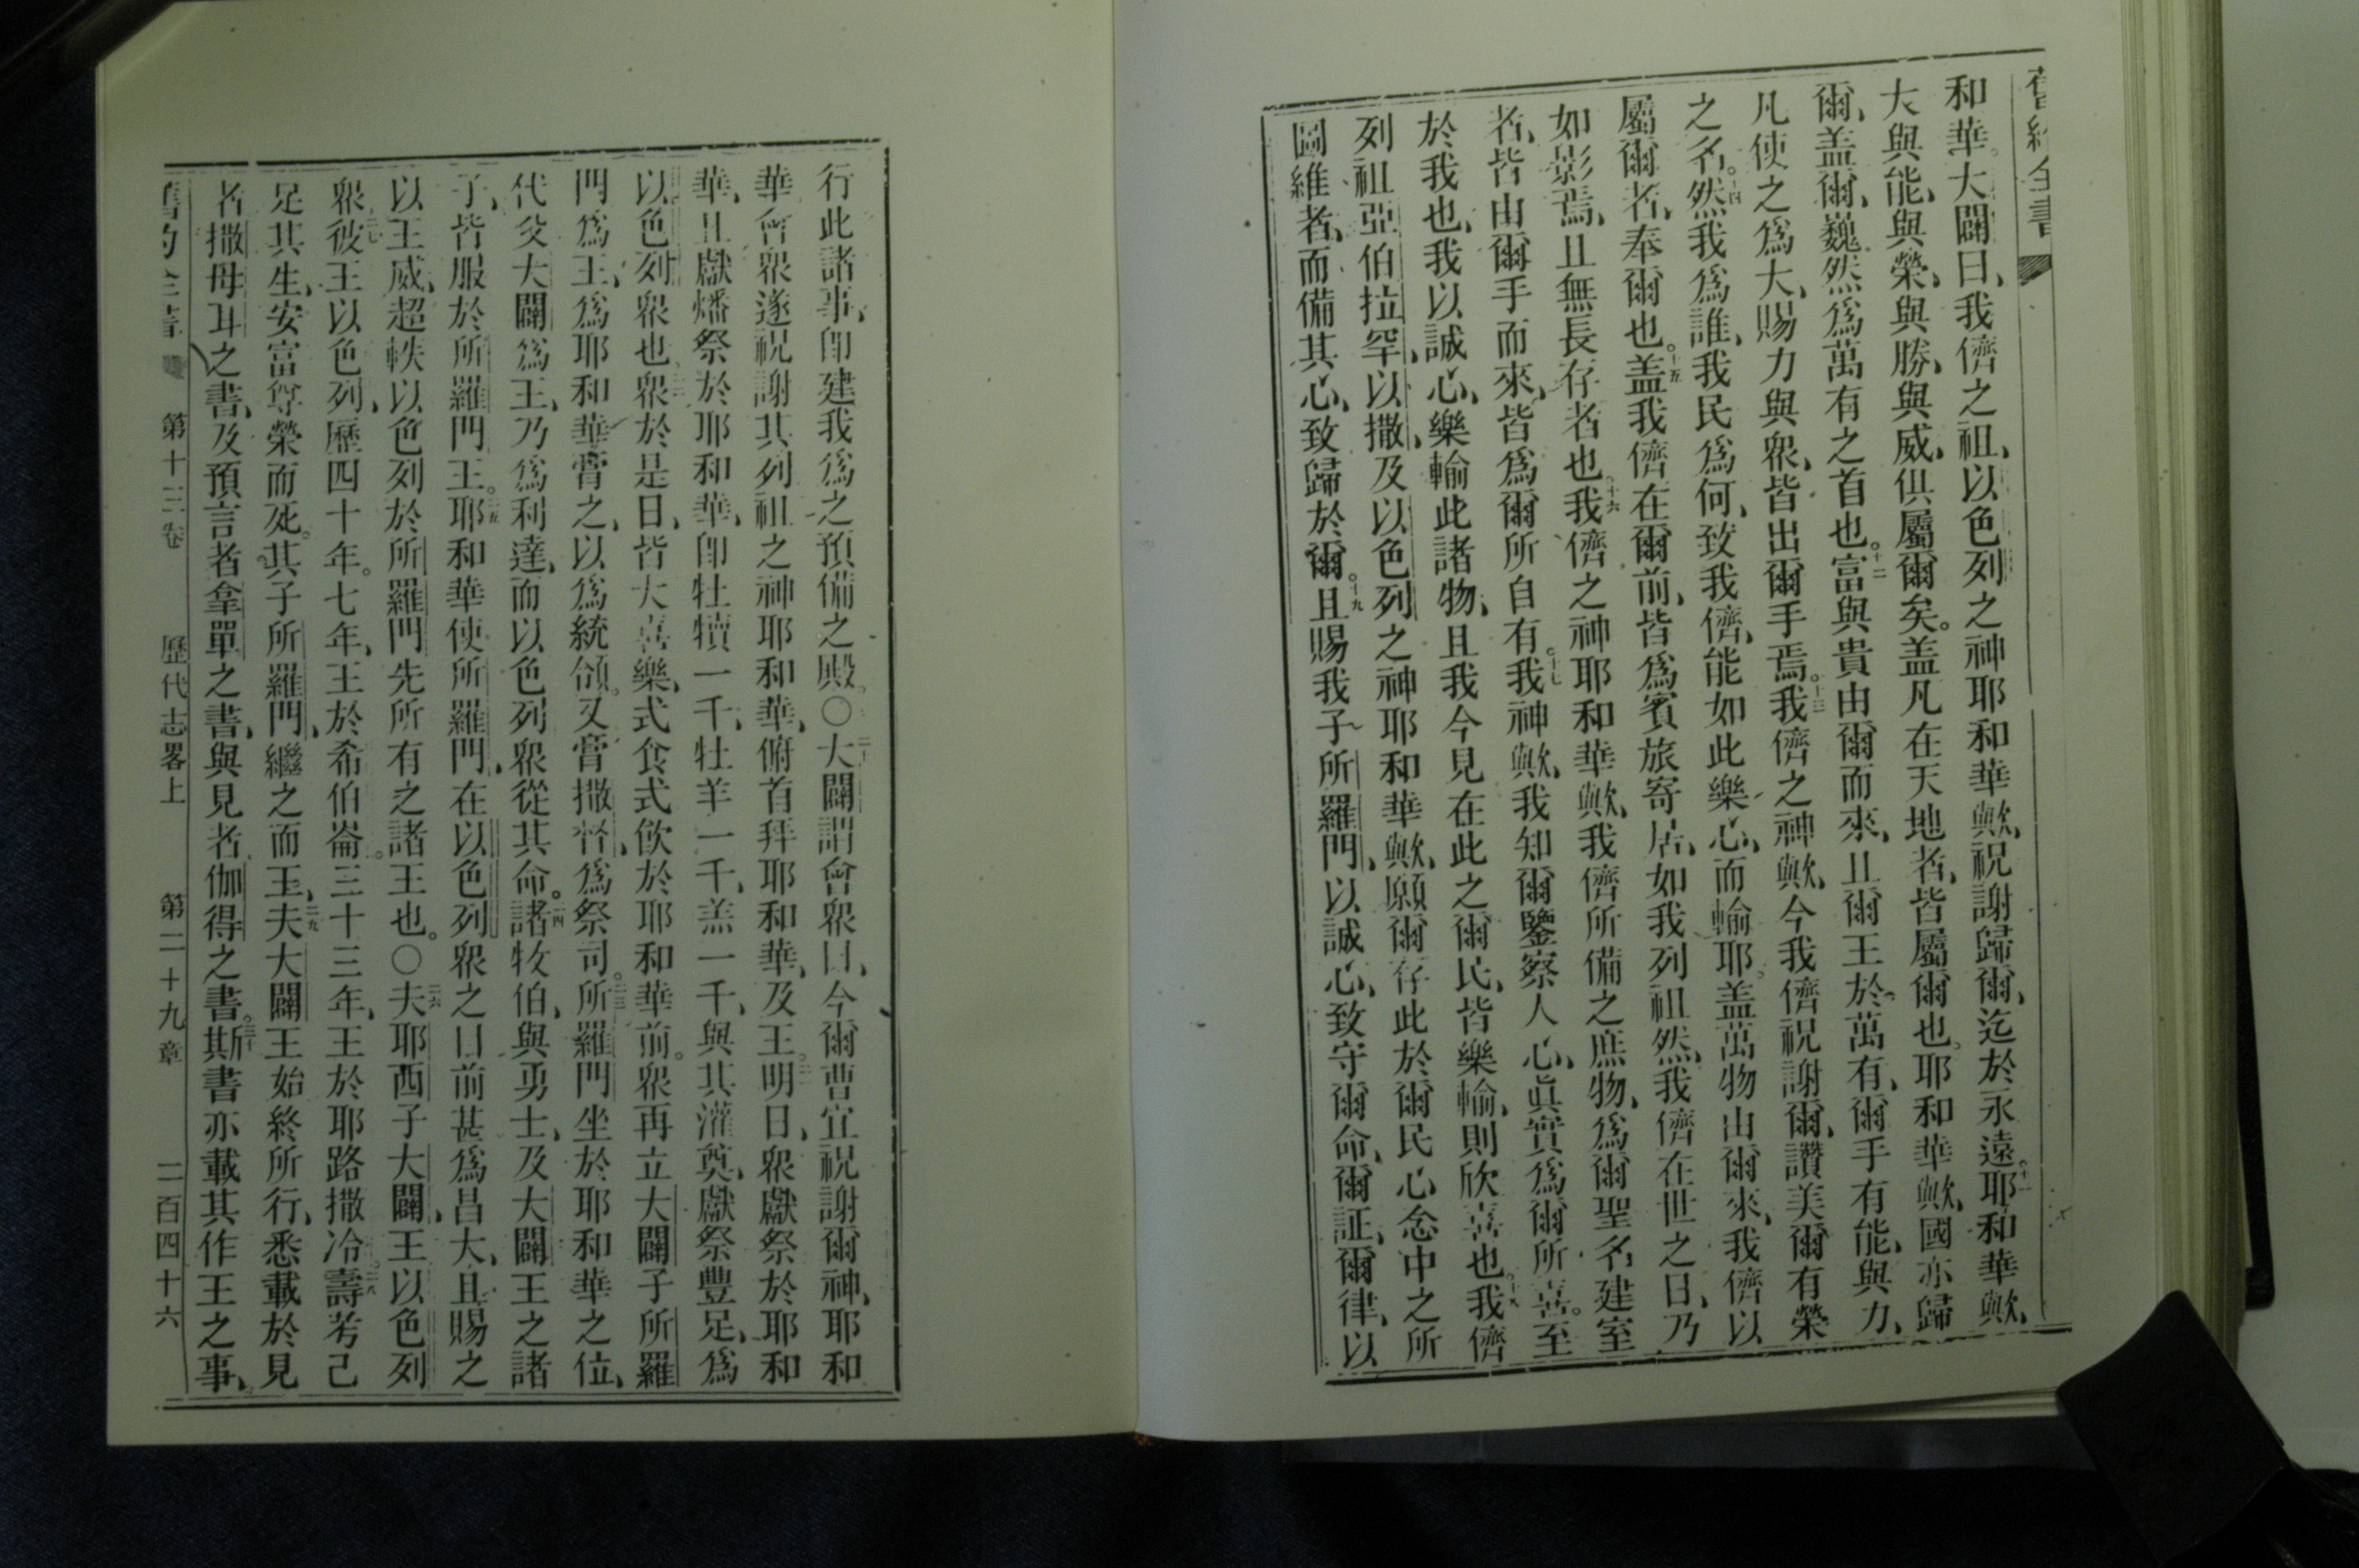 舊約全書
和華大闢曰我儕之祖以色列之神耶和華歟祝謝歸爾迄於永遠十一耶和華歟
大與能與榮與勝與威俱屬爾矣蓋凡在天地者皆屬爾也耶和華歟國亦歸
爾盖爾巍然爲萬有之首也十二富與貴由爾而來且爾王於萬有爾手有能與力
凡使之爲大賜力與衆皆出爾手焉十三我儕之神歟今我儕祝謝爾讚美爾有榮
之名十四然我爲誰我民爲何致我儕能如此樂心而輸耶盖萬物由爾來我儕以
屬爾者奉爾也十五盖我儕在爾前皆爲賓旅寄居如我列祖然我儕在世之日乃
如影焉且無長存者也十六我儕之神耶和華歟我儕所備之庶物爲爾聖名建室
者皆由爾手而來皆爲爾所自有十七我神歟我知爾鑒察人心眞實爲爾所喜至
於我也我以誠心樂輸此諸物且我今見在此之爾民皆樂輸則欣喜也十八我儕
列祖亞伯拉罕以撒及以色列之神耶和華歟願爾存此於爾民心念中之所
圖維者而備其心致歸於爾十九且賜我子所羅門以誠心致守爾命爾証爾律以
行此諸事卽建我爲之預備之殿〇二十大闢謂會衆曰今爾曹宜祝謝爾神耶和
華會衆遂祝謝其列祖之神耶和華俯首拜耶和華及王二一明日衆獻祭於耶和
華且獻燔祭於耶和華卽牡犢一千牡羊一千羔一千與其灌奠獻祭豐足爲
以色列衆也二二衆於是日皆大喜樂式食式飲於耶和華前衆再立大闢子所羅
門爲王爲耶和華膏之以爲統領又膏撒督爲祭司二三所羅門坐於耶和華之位
代父大闢爲王乃爲利達而以色列衆從其命二四諸牧伯與勇士及大闢王之諸
子皆服於所羅門王二五耶和華使所羅門在以色列衆之目前甚爲昌大且賜之
以王威超軼以色列於所羅門先所有之諸王也〇二六夫耶西子大闢王以色列
衆二七彼王以色列歷四十年七年王於希伯崙三十三年王於耶路撒冷二八壽考已
足其生安富尊榮而死其子所羅門繼之而王二九夫大闢王始終所行悉載於見
者撒母耳之書及預言者拿單之書與見者伽得之書三十斯書亦載其作王之事
舊約全書 第十三卷 歷代志畧上 第二十九章 二百四十六